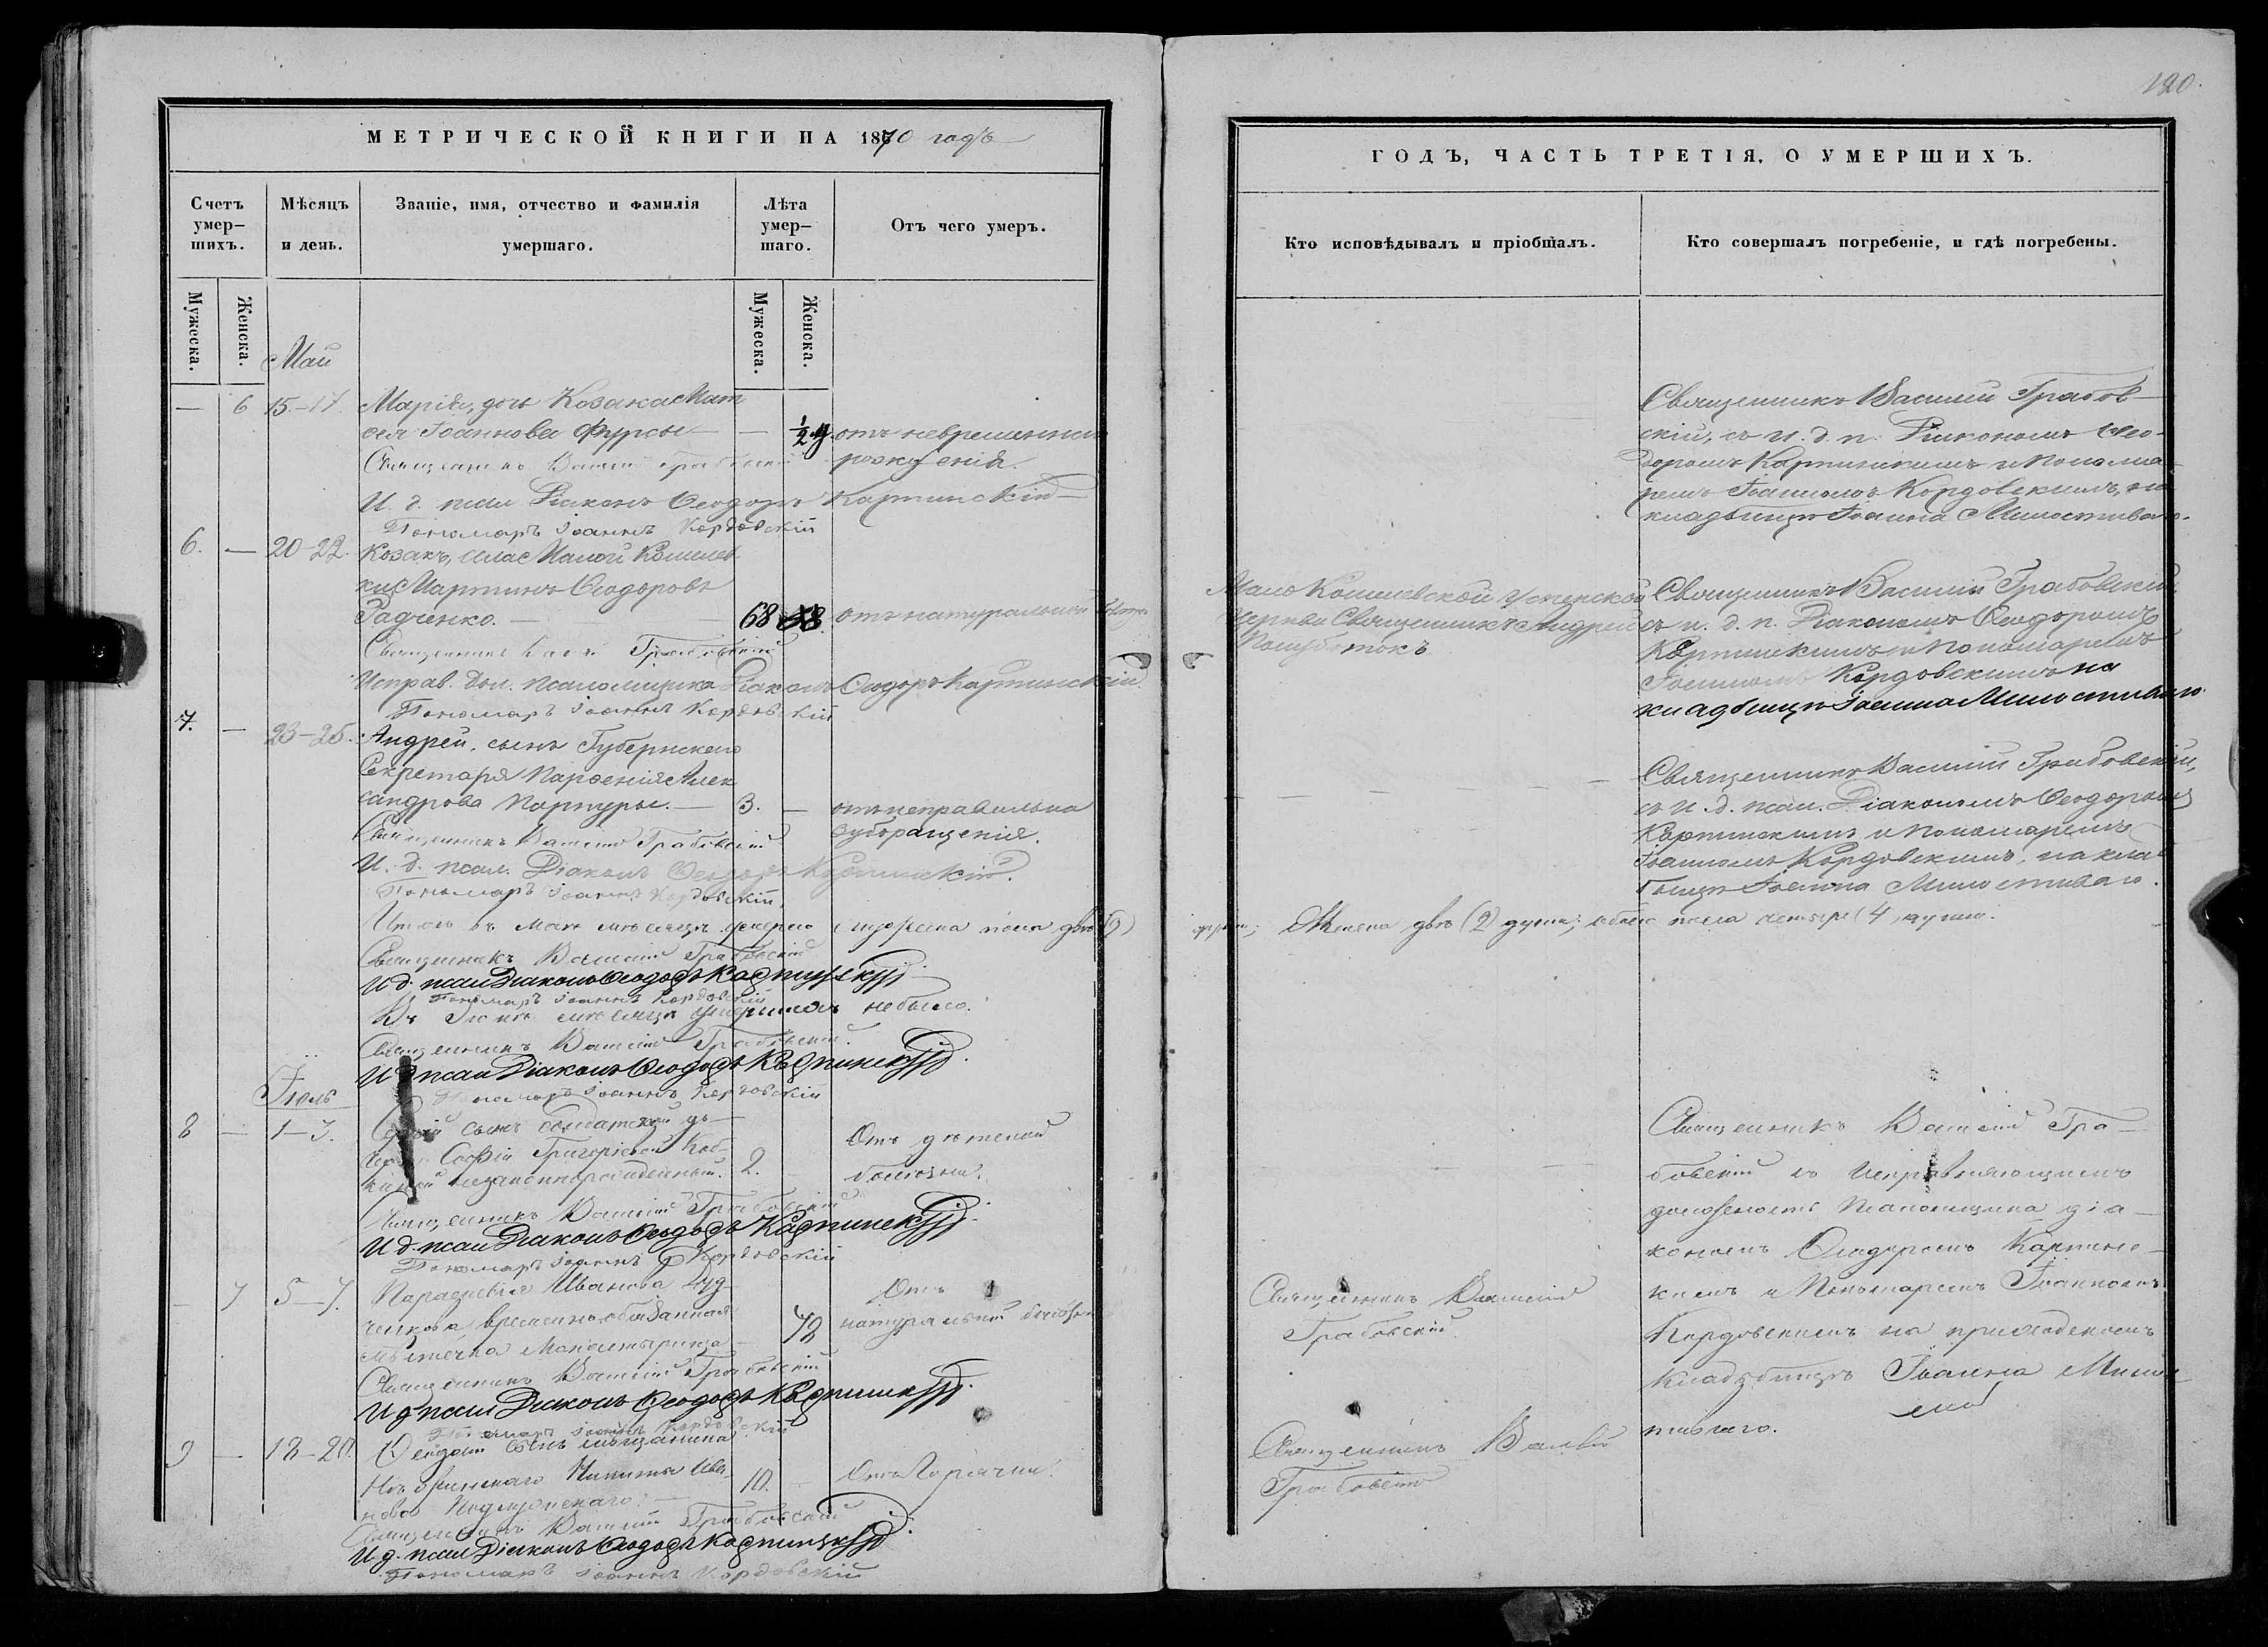 МЕТРИЧЕСКОЙ КНИГИ НА 1870 годъ
Счетъ умер-шихъ.
Мѣсяцъ и день.
Званіе, имя, отчество и фамилія умершаго.
Лѣта умер-шаго.
Отъ чего умеръ.
Мужеска.
Женска.
Мужеска.
Женска.
Май
— 6 15–17. Марія, дочь Козака Мат
ѳея Іоаннова Фурсы — — ½ г. отъ невременнаго
Священникъ Василій Грабовскій рожденія.
И. д. псал. Діаконъ Ѳеодоръ Картинскій
Пономарь Іоаннъ Кордовскій
6. — 20–22. Козакъ, села Малой Кошелев
ки Мартинъ Ѳеодоровъ
Радченко. — 68 58 отъ натуральной
Священникъ Василій Грабовскій
Исправ. дол. псаломщика Діаконъ Ѳеодоръ Картинскій.
Пономарь Іоаннъ Кордовскій
7. — 23–25. Андрей, сынъ Губернскаго
Секретаря Парѳенія Алек
сандрова Партуры. — 3. — отъ неправильна
Священникъ Василій Грабовскій зуборащенія.
И. д. псал. Діаконъ Ѳеодоръ Картинскій.
Пономарь Іоаннъ Кордовскій
Итого въ маѣ мѣсяцѣ умерло мужеска пола двѣ (2)
Священникъ Василій Грабовскій
И д. псал Діаконъ Ѳеодоръ Картинскій
Пономарь Іоаннъ Кордовскій
Въ Іюнѣ мѣсяцѣ умершихъ небыло.
Священникъ Василій Грабовскій.
И д псал Діаконъ Ѳеодоръ Картинскій.
Пономарь Іоаннъ Кордовскій
Іюль
8 — 1–3. сынъ Солдатской до—
Софіи Григоріевой Отъ дѣтской
незаконнорожденный. 2. болѣзни.
Священникъ Василій Грабовскій
И д. псал Діаконъ Ѳеодоръ Картинскій.
Пономарь Іоаннъ Кордовскій
— 7 5–7. Параскевія Иванова Отъ
временно-обязанная 72 натуральной болѣзни
мѣстечка Монастырища
Священникъ Василій Грабовскій
И д псал Діаконъ Ѳеодоръ Картинскій.
Пономарь Іоаннъ Кордовскій
9 — 18–20. сынъ мѣщанина
Нѣжинскаго Никиты Ива 10. — Отъ Горячки.
нова
Священникъ Василій Грабовскій
И д. псал Діаконъ Ѳеодоръ Картинскій.
Пономарь Іоаннъ Кордовскій
190.
ГОДЪ, ЧАСТЬ ТРЕТІЯ, О УМЕРШИХЪ.
Кто исповѣдывалъ и пріобщалъ.
Кто совершалъ погребеніе, и гдѣ погребены.
Священникъ Василій Грабов—
скій, съ и. д. п. Діакономъ Ѳео-
доромъ Картинскимъ и Понома
ремъ Іоанномъ Кордовскимъ, на
кладбищѣ Іоанна Милостиваго.
Мало Кошелевской Успенской
Церкви Священникъ Андрей
Полуботокъ.
Священникъ Василій Грабовскій,
съ и. д. п. Діакономъ Ѳеодоромъ
Картинскимъ и Пономаремъ
Іоанномъ Кордовскимъ на
кладбищѣ Іоанна Милостиваго.
Священникъ Василій Грабовскій,
съ и. д. псал. Діакономъ Ѳеодоромъ
Картинскимъ и Пономаремъ
Іоанномъ Кордовскимъ, на клад
бищѣ Іоанна Милостиваго.
души; Женска двѣ (2) души; обоего пола четыре (4) души.
Священникъ Василій Гра—
бовскій съ Исправляющимъ
должность Псаломщика діа—
кономъ Ѳеодоромъ Картинс—
кимъ и Пономаремъ Іоанномъ
Кордовскимъ на приходскомъ
кладбищѣ Іоанна Милос
тиваго.
Священникъ Василій
Грабовскій.
Священникъ Василій
Грабовскій